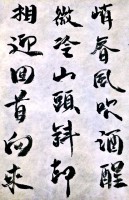 峭春風吹酒醒
微冷山頭斜卻
相迎回首向來